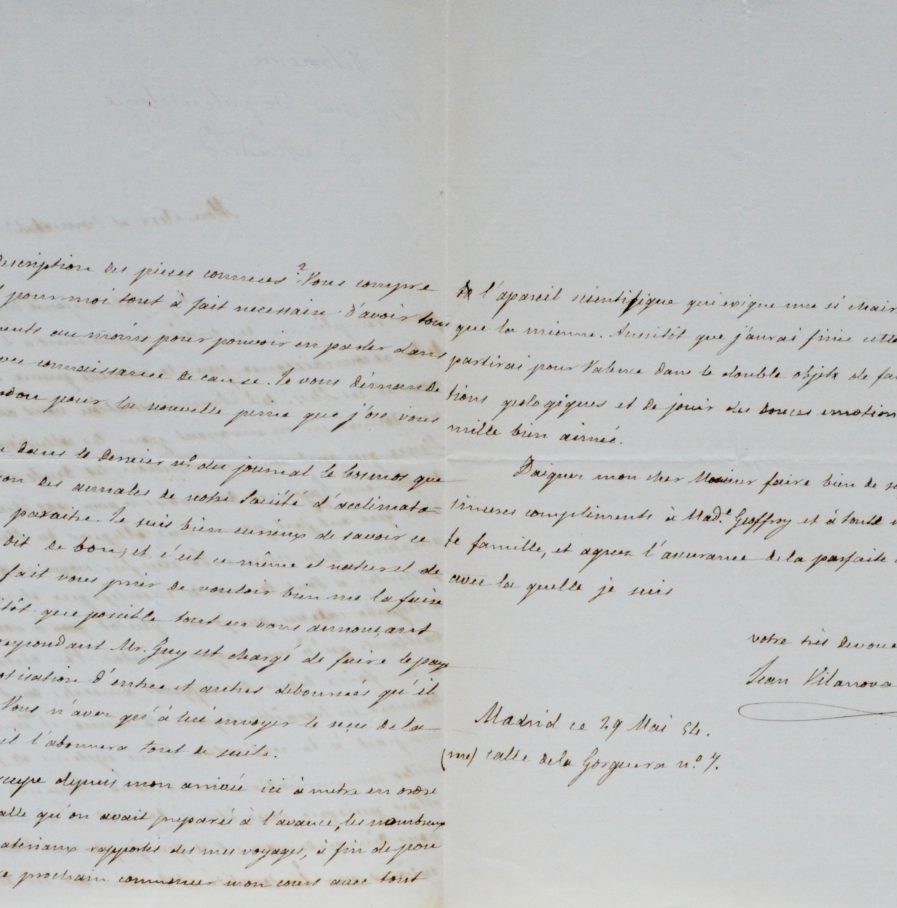 description des pieces connecés? Vous compre
pour moi tout à fait necessaire d'avoir tous
ments au moins pour pouvoir en parler dans
connaissance de cause. Je vous demande
pour la nouvelle peine que j'ose vous
dans le dernier nº du journal le Cosmos que
des annales de notre Société d'acclimata-
paraitre. Je suis bien curieux de savoir ce
doit de bon, et c'est ce même et naturel de
fait vous prier de vouloir bien me la faire
tôt que possible tout en vous annonçant
respondant Mr. Guy est chargé de faire le pay
d'entrée et autres débourcés qu'il
Vous n'avez qu'à lui envoyer le reçu de la
il l'abonnera tout de suite.
depuis mon arrivée ici à metre en ordre
salle qu'on avait preparée à l'avance, les nombreux
materiaux rapportés des mes voyages, à fin de pou
prochain commencer mon cours avec tout
de l'apareil scientifique qui exige une si chair
que la mienne. Aussitôt que j'aurai finie cette
partirai pour Valence dans le double objet de fai
tions geologiques et de jouir des douces emotion
mille bien aimée.
Daignez mon cher Monsieur faire bien de
sinceres compliments à Madᵉ Geoffroy et à toute
famille, et agreez l'assurance de la parfaite
avec la quelle je suis
votre très devoué
Jean Vilanova
Madrid ce 29 Mai 54.
(rue) calle de la Gorguera nº 7.